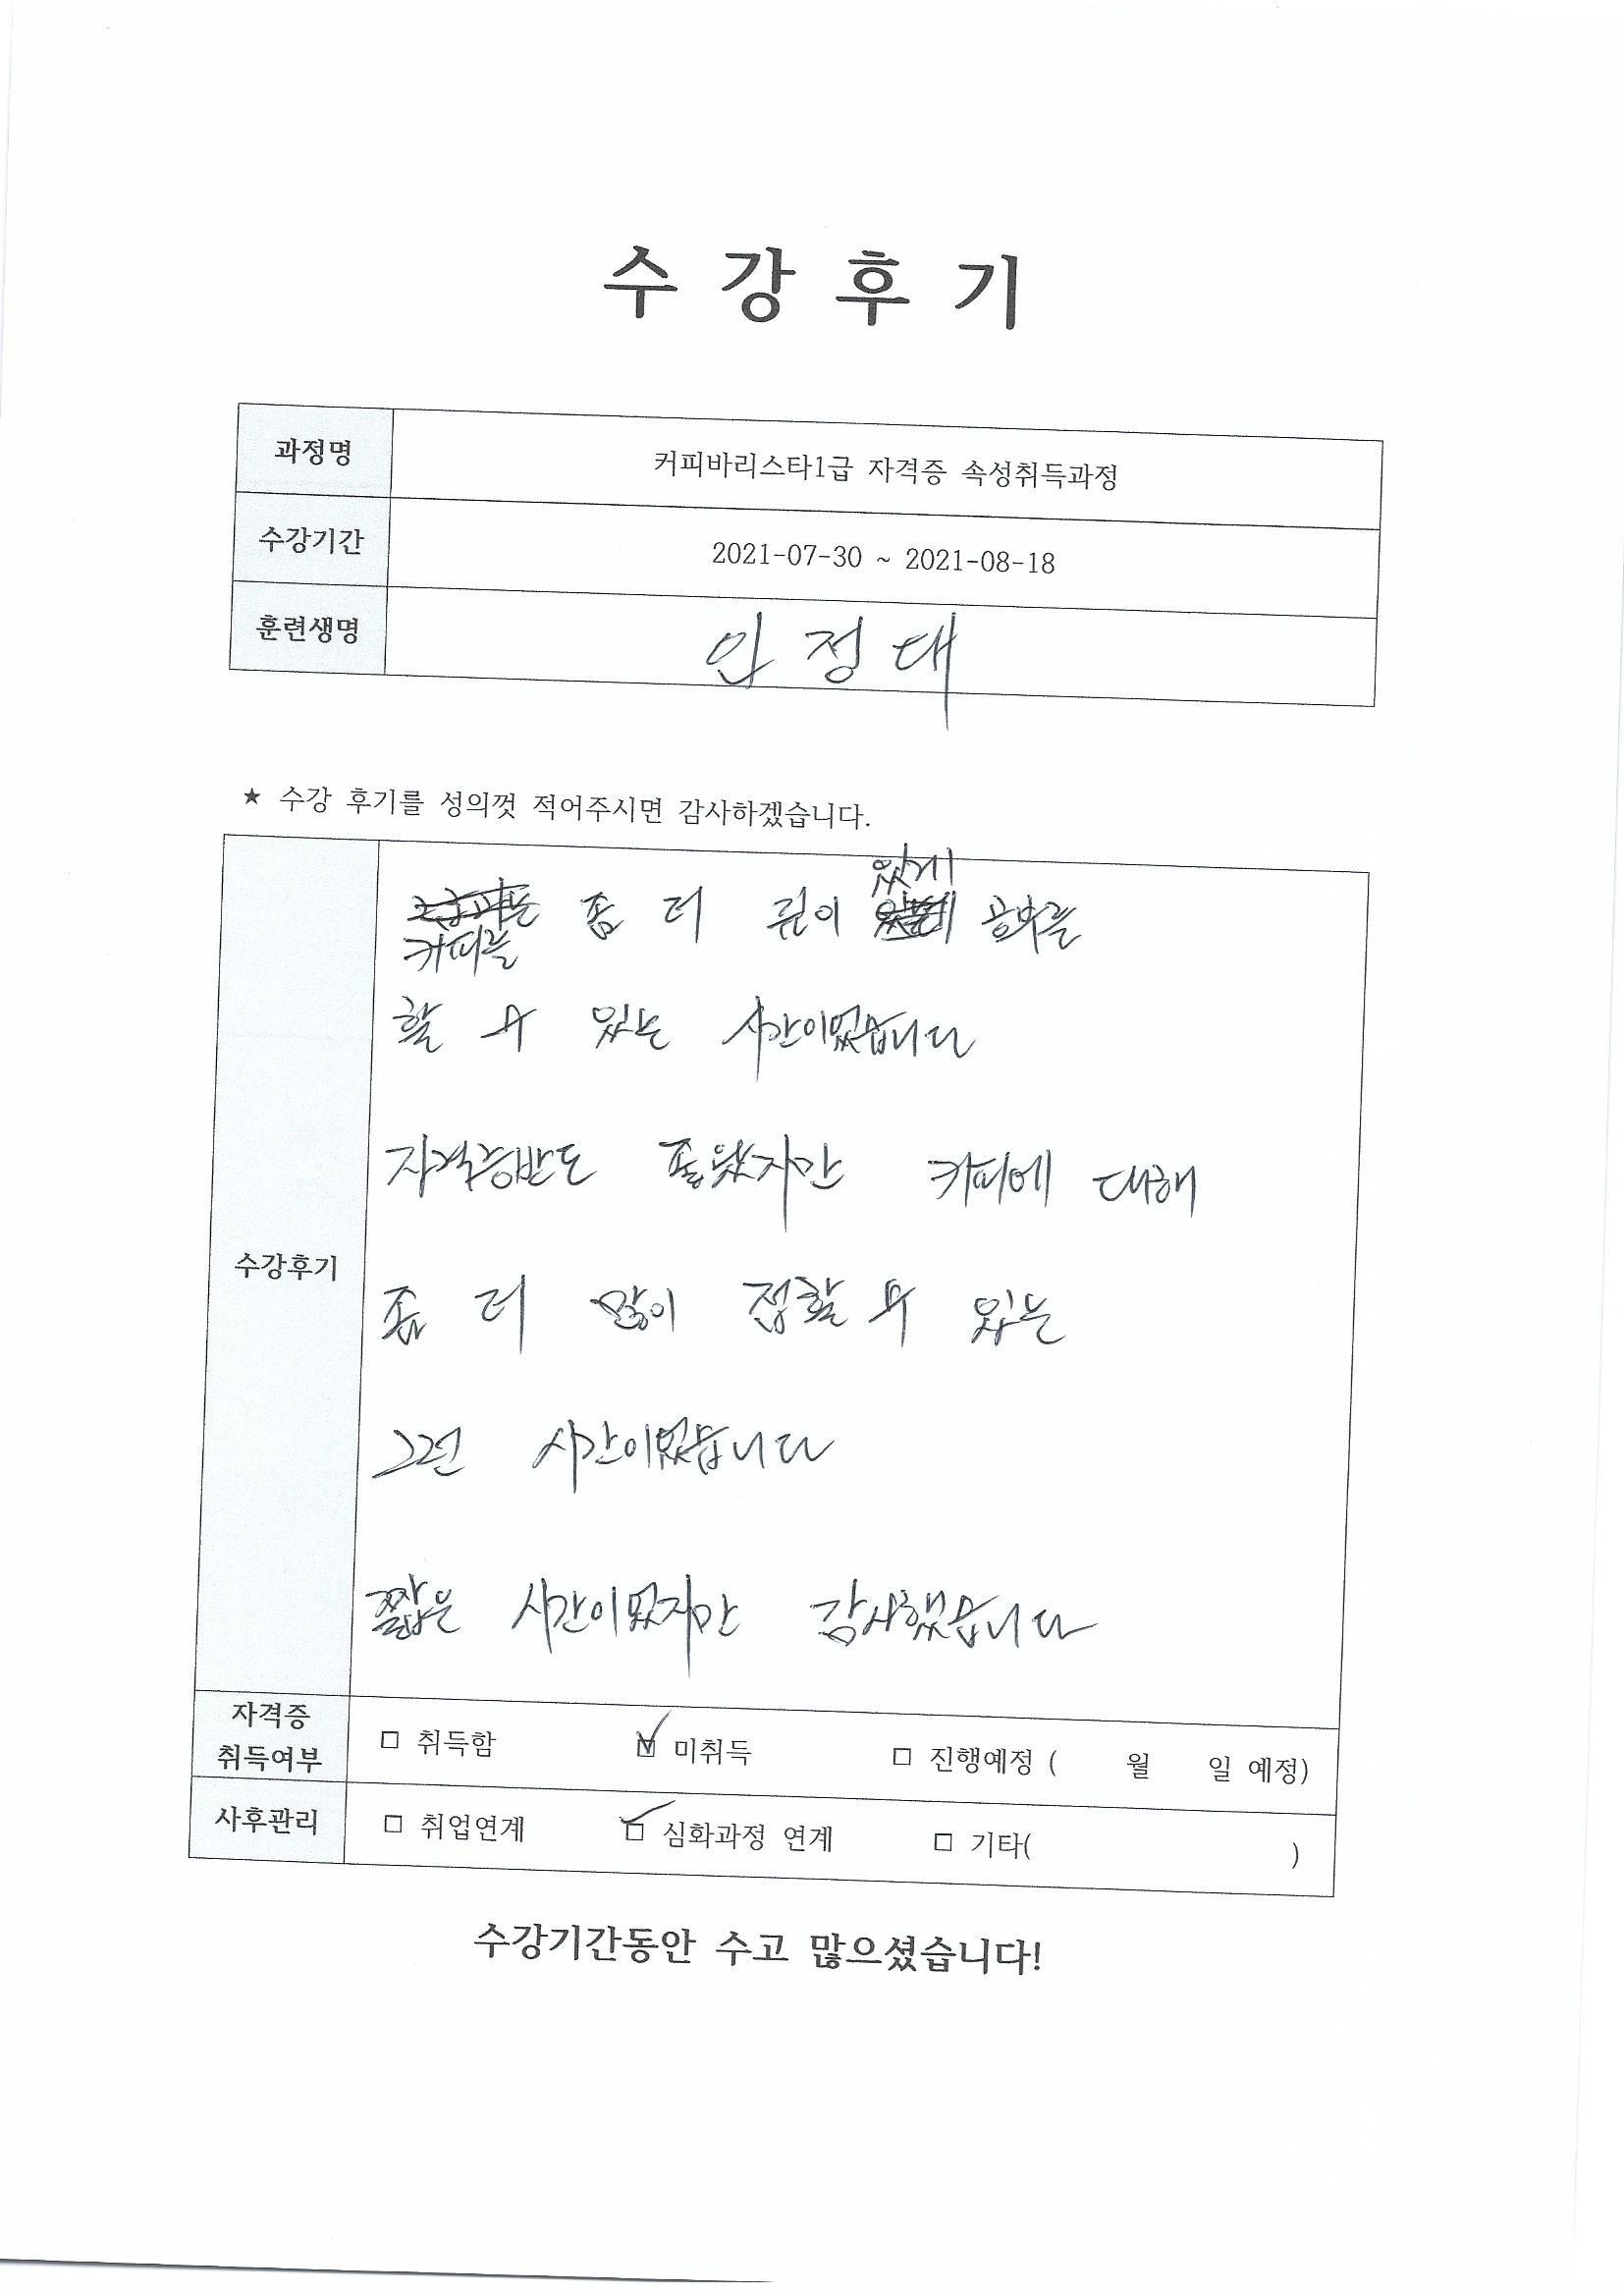 수 강 후 기
과정명 커피바리스타1급 자격증 속성취득과정
수강기간 2021-07-30 ~ 2021-08-18
훈련생명 안 정 대
★ 수강 후기를 성의껏 적어주시면 감사하겠습니다.
수강후기
커피를 좀 더 깊이 있게 공부를
할 수 있는 시간이었습니다
자격증반도 좋았지만 커피에 대해
좀 더 많이 접할 수 있는
그런 시간이었습니다
짧은 시간이었지만 감사했습니다
자격증 취득여부 □ 취득함 ☑ 미취득 □ 진행예정 ( 월 일 예정)
사후관리 □ 취업연계 ☑ 심화과정 연계 □ 기타( )
수강기간동안 수고 많으셨습니다!